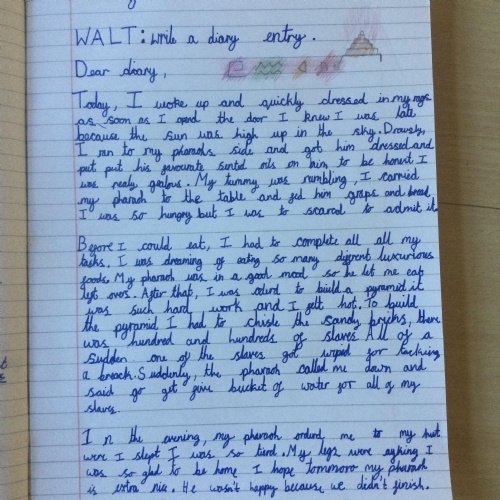 WALT: write a diary entry.
Dear diary,
Today, I woke up and quickly dressed in my rags
as soon as I opend the door I knew I was late
because the sun was high up in the sky. Drowsly,
I ran to my pharaohs side and got him dressed and
put put his favourate sented oils on him to be honest I
was realy gealous. My tummy was rumbling, I carried
my pharaoh to the table and fed him graps and bread.
I was so hungry but I was to scared to admit it.
Before I could eat, I had to complete all all my
tasks. I was dreaming of eating so many diffrent luxurious
foods. My pharaoh was in a good mood so he let me eat
left overs. After that, I was orderd to build a pyramid it
was such hard work and I felt hot. To build
the pyramid I had to chisle the sandy bricks, there
was hundred and hundreds of slaves. All of a
sudden one of the slaves got wiped for tacking
a breack. Suddenly, the pharaoh called me down and
said go get five bucket of water for all of my
slaves.
In the evening, my pharaoh orderd me to my hut
were I slept I was so tierd. My legs were ayking I
was so glad to be home I hope tommoro my pharaoh
is extra nice. He wasn't happy because we didn't finish.